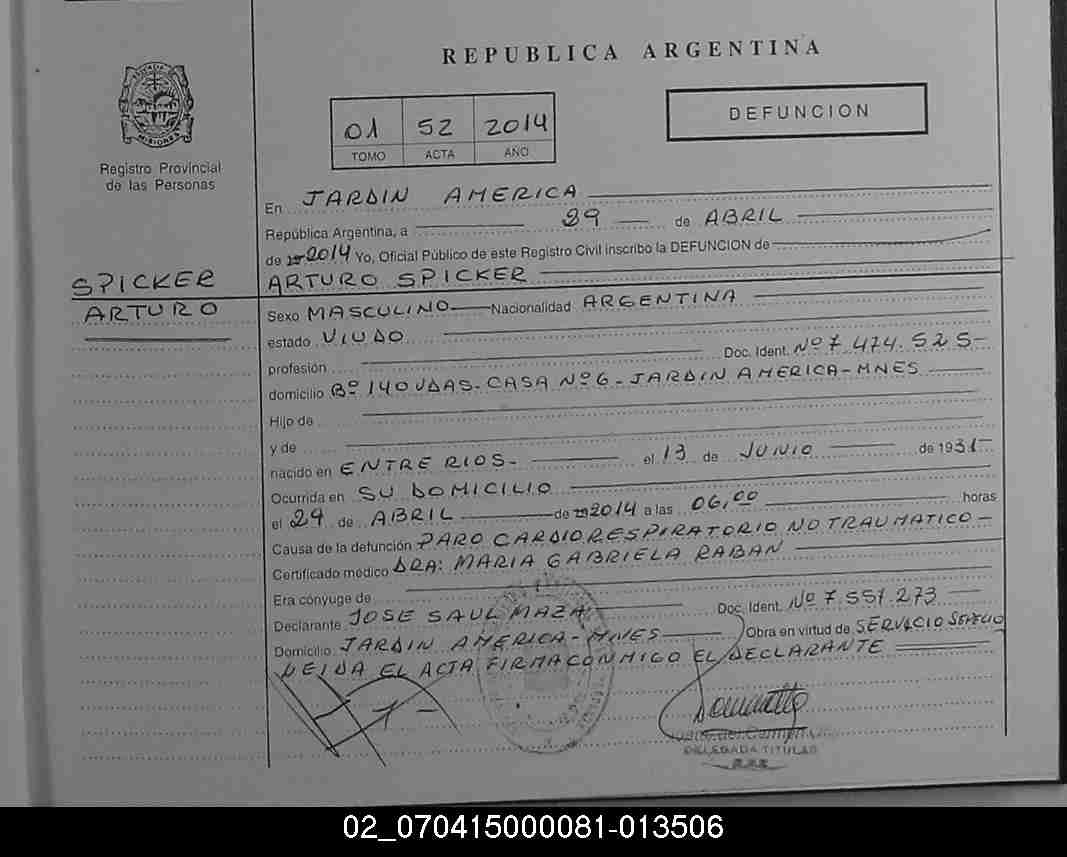 REPUBLICA ARGENTINA
MISIONES
Registro Provincial
de las Personas
01 52 2014
TOMO ACTA AÑO
DEFUNCION
En JARDIN AMERICA
República Argentina, a 29 de ABRIL
de 2014 Yo, Oficial Público de este Registro Civil inscribo la DEFUNCION de
SPICKER
ARTURO
ARTURO SPICKER
Sexo MASCULINO Nacionalidad ARGENTINA
estado VIUDO
profesión Doc. Ident. Nº 7.474.525-
domicilio Bº 140 VDAS- CASA Nº 6- JARDIN AMERICA-MNES
Hijo de
y de
nacido en ENTRE RIOS- el 13 de JUNIO de 1931-
Ocurrida en SU DOMICILIO
el 29 de ABRIL de 2014 a las 06,00 horas
Causa de la defunción PARO CARDIO RESPIRATORIO NO TRAUMATICO-
Certificado médico DRA: MARIA GABRIELA RABAN
Era cónyuge de
Declarante JOSE SAUL MAZA Doc. Ident. Nº 7.551.273
Domicilio JARDIN AMERICA-MNES Obra en virtud de SERVICIO SEPELIO
LEIDA EL ACTA FIRMA CONMIGO EL DECLARANTE
DELEGADA TITULAR
02_070415000081-013506